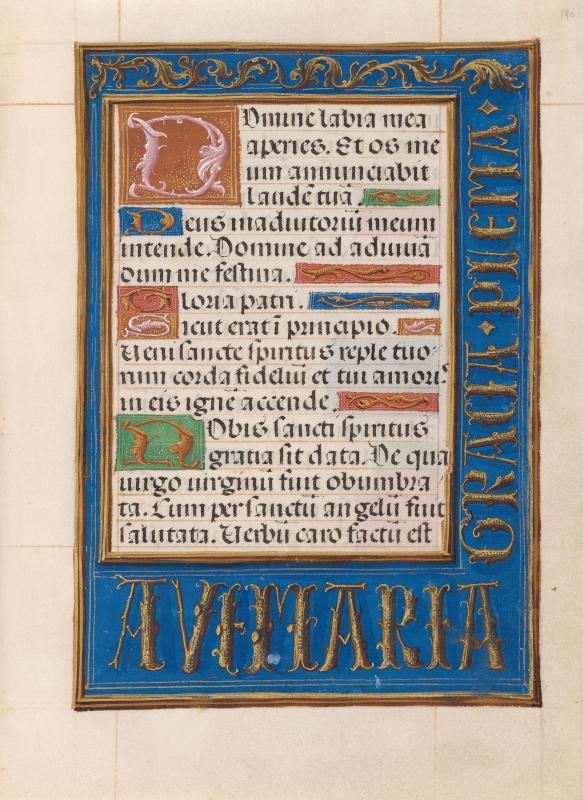 Domine labia mea
aperies. Et os me
um annunciabit
laudē tuā.
Deus in adiutoriū meum
intende. Domine ad adiuuā
dum me festina.
Gloria patri.
Sicut erat ī principio.
Ueni sancte spiritus reple tuo-
rum corda fideliū et tui amoris
in eis ignē accende.
Nobis sancti spiritus
gratia sit data. De qua
uirgo uirginū fuit obumbra
ta. Cum per sanctū angelū fuit
salutata. Uerbū caro factū est
AVE MARIA
GRACIA PLEMA
190